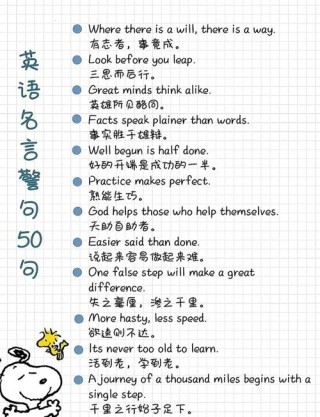 英语名言警句50句
Where there is a will, there is a way.
有志者，事竟成。
Look before you leap.
三思而后行。
Great minds think alike.
英雄所见略同。
Facts speak plainer than words.
事实胜于雄辩。
Well begun is half done.
好的开端是成功的一半。
Practice makes perfect.
熟能生巧。
God helps those who help themselves.
天助自助者。
Easier said than done.
说起来容易做起来难。
One false step will make a great
difference.
失之毫厘，渗之千里。
More hasty, less speed.
欲速则不达。
Its never too old to learn.
活到老，学到老。
A journey of a thousand miles begins with a
single step.
千里之行始于足下。